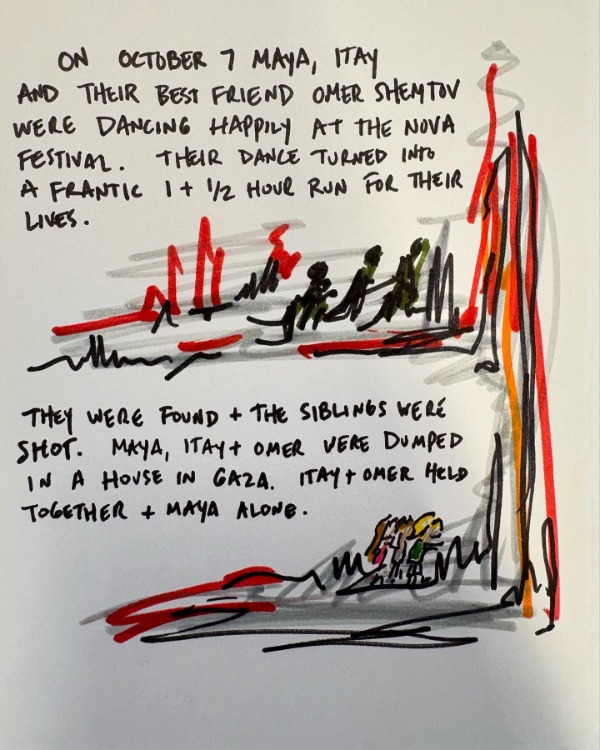 ON OCTOBER 7 MAYA, ITAY
AND THEIR BEST FRIEND OMER SHEMTOV
WERE DANCING HAPPILY AT THE NOVA
FESTIVAL. THEIR DANCE TURNED INTO
A FRANTIC 1 + 1/2 HOUR RUN FOR THEIR
LIVES.
THEY WERE FOUND + THE SIBLINGS WERE
SHOT. MAYA, ITAY + OMER WERE DUMPED
IN A HOUSE IN GAZA. ITAY + OMER HELD
TOGETHER + MAYA ALONE.